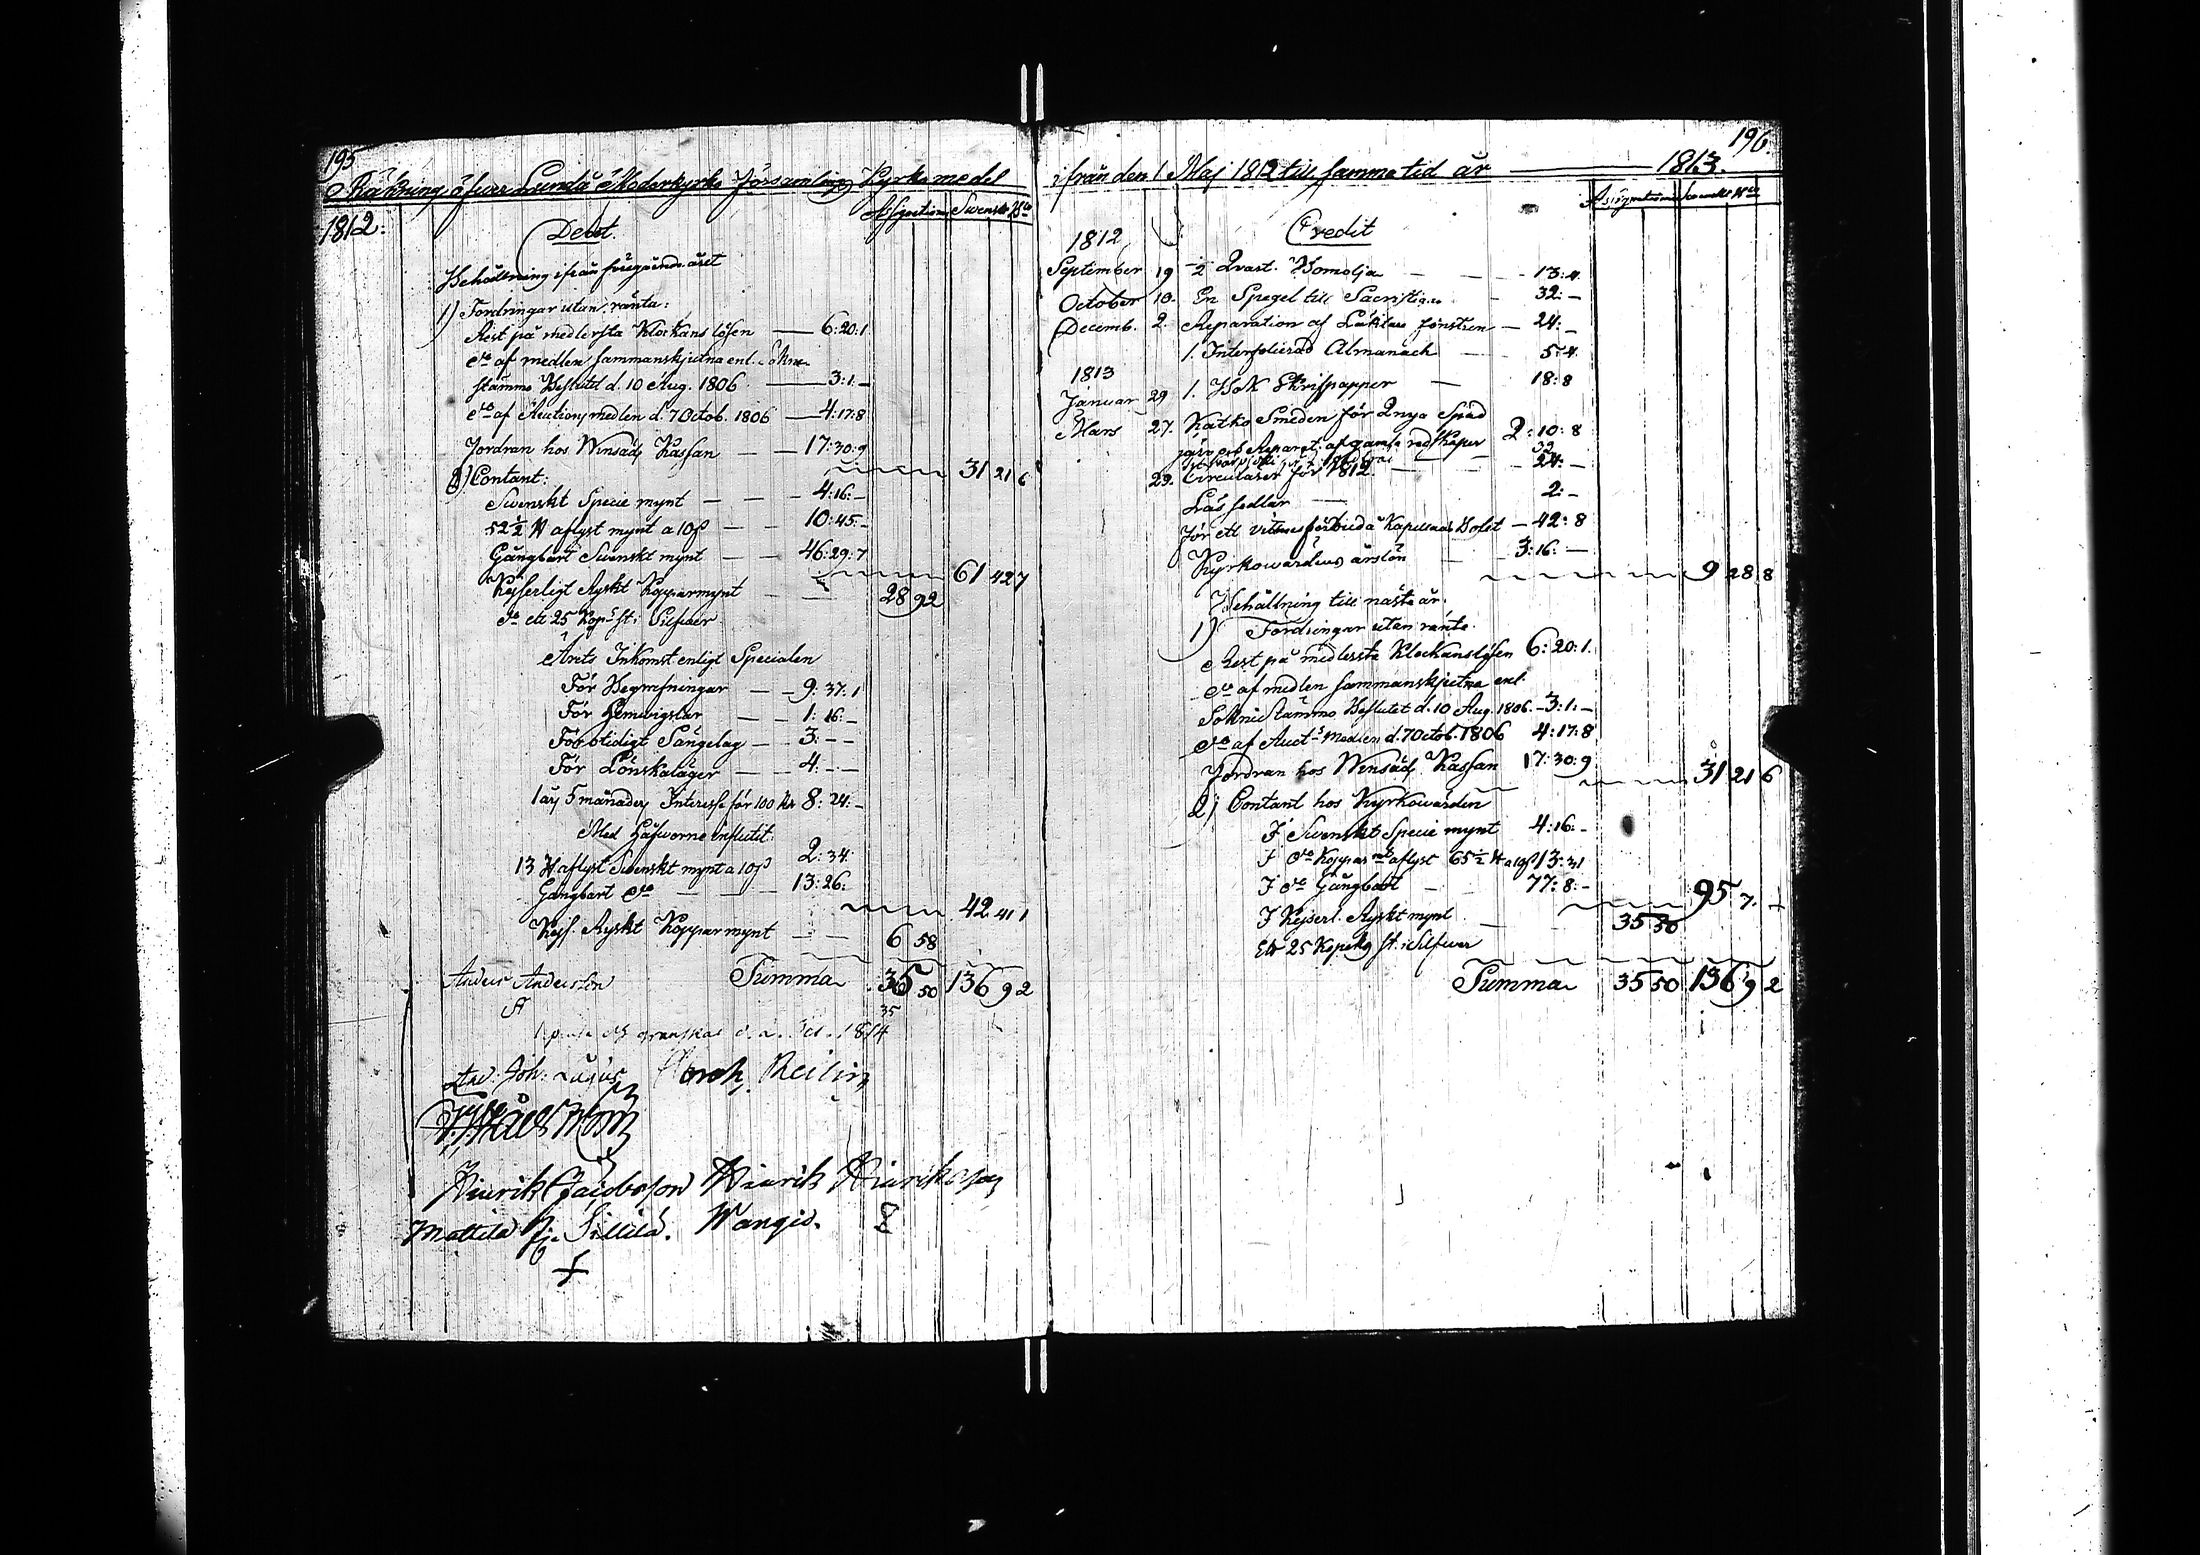 195
Räkning öfver Lundå Moderkyrko Församlings Kyrko medel
Assignationer Swenskt B:co
1812:
Debet.
Behållning ifrån föregående året
1) Fordringar utan ränta:
Rest på medlersta Klockans lösen — 6:20:1
d:o af medlen sammanskjutna enl. Sokne
stämmo Beslutet d. 10 Aug. 1806 — 3:1:–
d:o af Auctions medlen d. 7 Octob. 1806 — 4:17:8
Fordran hos Kassan — 17:30:9
31 21 6
2) Contant:
Swenskt Specie mynt — 4:16:–
52 1/2 aflyst mynt a 10 — 10:45:–
Gångbart Swenskt mynt — 46:29:7
61 42 7
Kejserligt Ryskt Koppar mynt — 28 92
d:o ett 25 Kop:s st: Silfver
Årets Inkomst enligt Specialen
För Begrafningar — 9:37:1
För — 1:16:–
För otidigt Sängelag — 3:–:–
För Lönskaläger — 4:–:–
1 års 5 månaders Interesse för 100 8:24:–
Med Håfvorne influtit
13 aflyst Swenskt mynt a 10 2:34:
Gångbart d:o — 13:26:
42 41 1
Kejs. Ryskt Koppar mynt — 6 58
Anders Andersson
Summa 35 50 136 9 2
35
granskat 1814
Joh:
Hinrik Jacobsson Hinrik Hinriksson
Mattila Sillilä. Wangio.
196
ifrån den 1 Maj 1812 till samma tid år — 1813.
Assignationer Swenskt B:co
Credit
1812
September 19 1/2 Qvart. Bomolja — 13:4
October 10. En Spegel till Sacristian — 32:–
Decemb. 2. Reparation af fönstren — 24:–
1. Interfolierad Almanach — 5:4
1813
Januar 29 1. Bok Skrifpapper — 18:8
Mars 27. Smeden för 2 nya
Reparat: af gamla redskaper 2:10:8
32
29. Circulairer för 1812 — 24:–
Låssedlar — 2:–
För ett Holst — 42:8
Kyrkowärdens årslön — 3:16:–
9 28 8
Behållning till nästa år.
1) Fordringar utan ränta.
Rest på medlersta Klockans lösen 6:20:1.
d:o af medlen sammanskjutna enl.
Soknestämmo Beslutet d. 10 Aug. 1806. — 3:1.–
d:o af Auct:s Medlen d. 7 Octob. 1806 4:17:8
Fordran hos Kassan 17:30:9
31 21 6
2) Contant hos Kyrkowärden
I Swenskt Specie mynt 4:16:–
I d:o Koppar aflyst 65 1/2 a 10 13:31
I d:o Gångbart — 77:8:–
95 7.
I Kejserl. Ryskt mynt — 35 50
Ett 25 Kopeks st. i Silfver
Summa 35 50 136 9 2